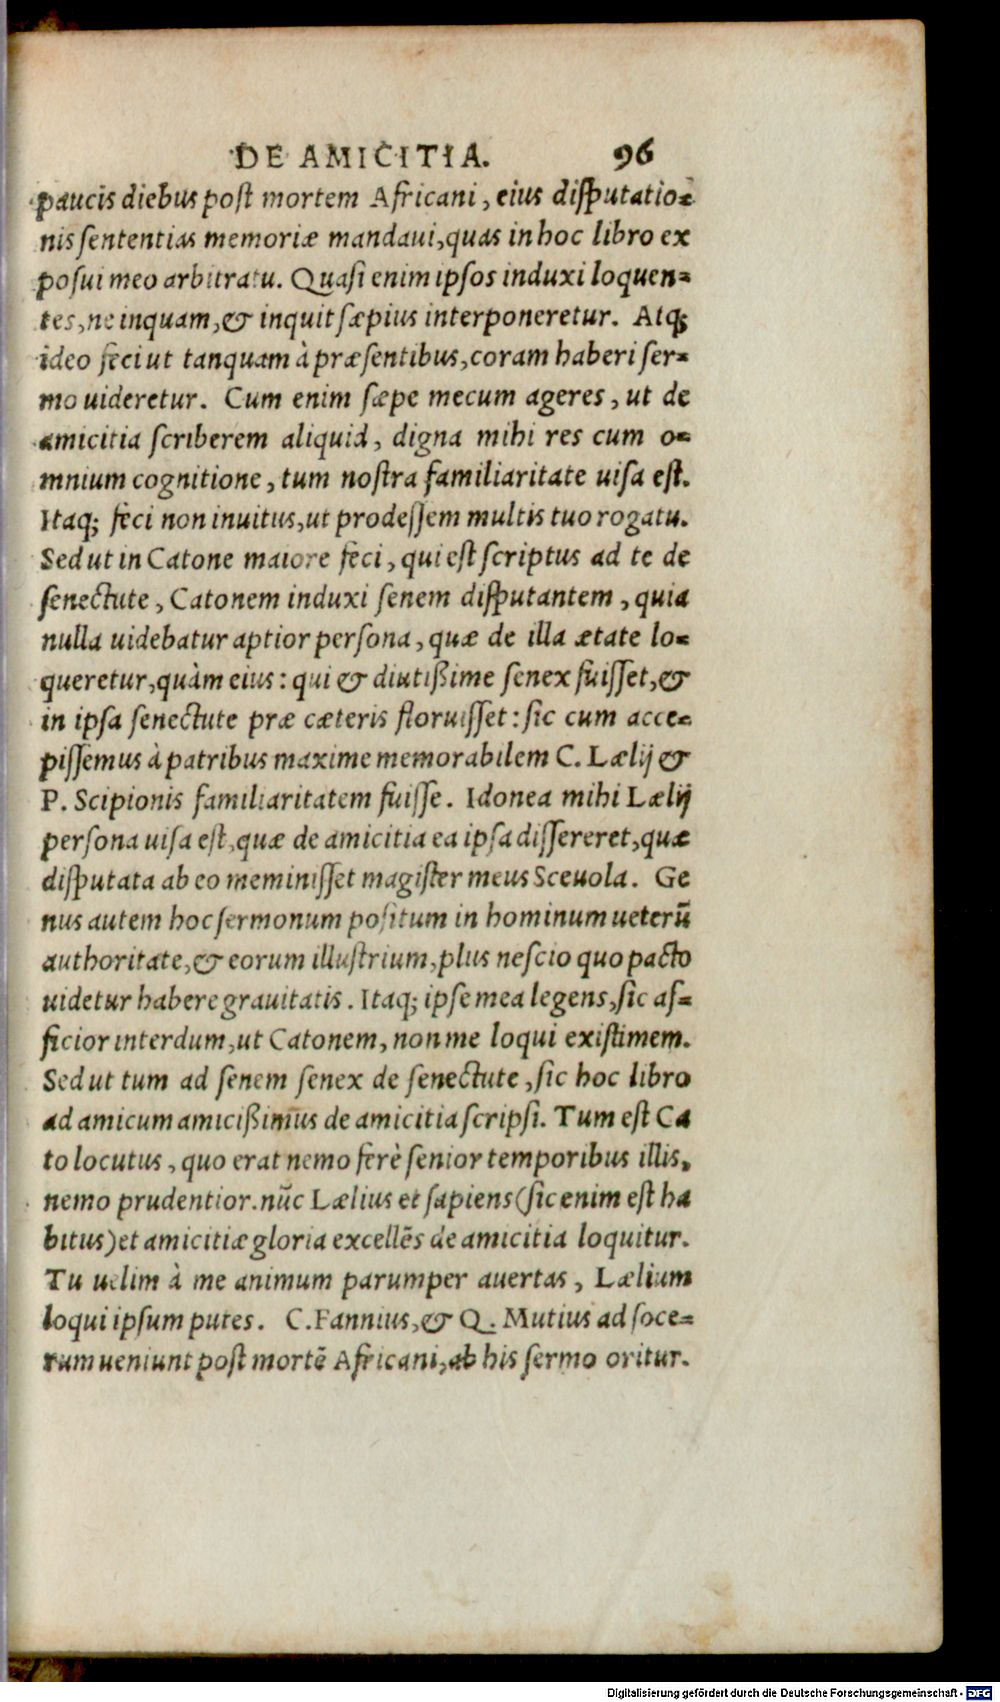 DE AMICITIA. 96
paucis diebus post mortem Africani, eius disputatio-
nis sententias memoriæ mandaui, quas in hoc libro ex
posui meo arbitratu. Quasi enim ipsos induxi loquen-
tes, ne inquam, & inquit sæpius interponeretur. Atq;
ideo feci ut tanquam à præsentibus, coram haberi ser-
mo uideretur. Cum enim sæpe mecum ageres, ut de
amicitia scriberem aliquid, digna mihi res cum o-
mnium cognitione, tum nostra familiaritate uisa est.
Itaq; feci non inuitus, ut prodessem multis tuo rogatu.
Sed ut in Catone maiore feci, qui est scriptus ad te de
senectute, Catonem induxi senem disputantem, quia
nulla uidebatur aptior persona, quæ de illa ætate lo-
queretur, quàm eius: qui & diutißime senex fuisset, &
in ipsa senectute præ cæteris floruisset: sic cum acce-
pissemus à patribus maxime memorabilem C. Lælij &
P. Scipionis familiaritatem fuisse. Idonea mihi Lælij
persona uisa est, quæ de amicitia ea ipsa dissereret, quæ
disputata ab eo meminisset magister meus Sceuola. Ge
nus autem hoc sermonum positum in hominum ueterū
authoritate, & eorum illustrium, plus nescio quo pacto
uidetur habere grauitatis. Itaq; ipse mea legens, sic af-
ficior interdum, ut Catonem, non me loqui existimem.
Sed ut tum ad senem senex de senectute, sic hoc libro
ad amicum amicißimus de amicitia scripsi. Tum est Ca
to locutus, quo erat nemo ferè senior temporibus illis,
nemo prudentior. nūc Lælius et sapiens (sic enim est ha
bitus) et amicitiæ gloria excellēs de amicitia loquitur.
Tu uelim à me animum parumper auertas, Lælium
loqui ipsum putes. C. Fannius, & Q. Mutius ad soce-
rum ueniunt post mortē Africani, ab his sermo oritur.
Digitalisierung gefördert durch die Deutsche Forschungsgemeinschaft - DFG